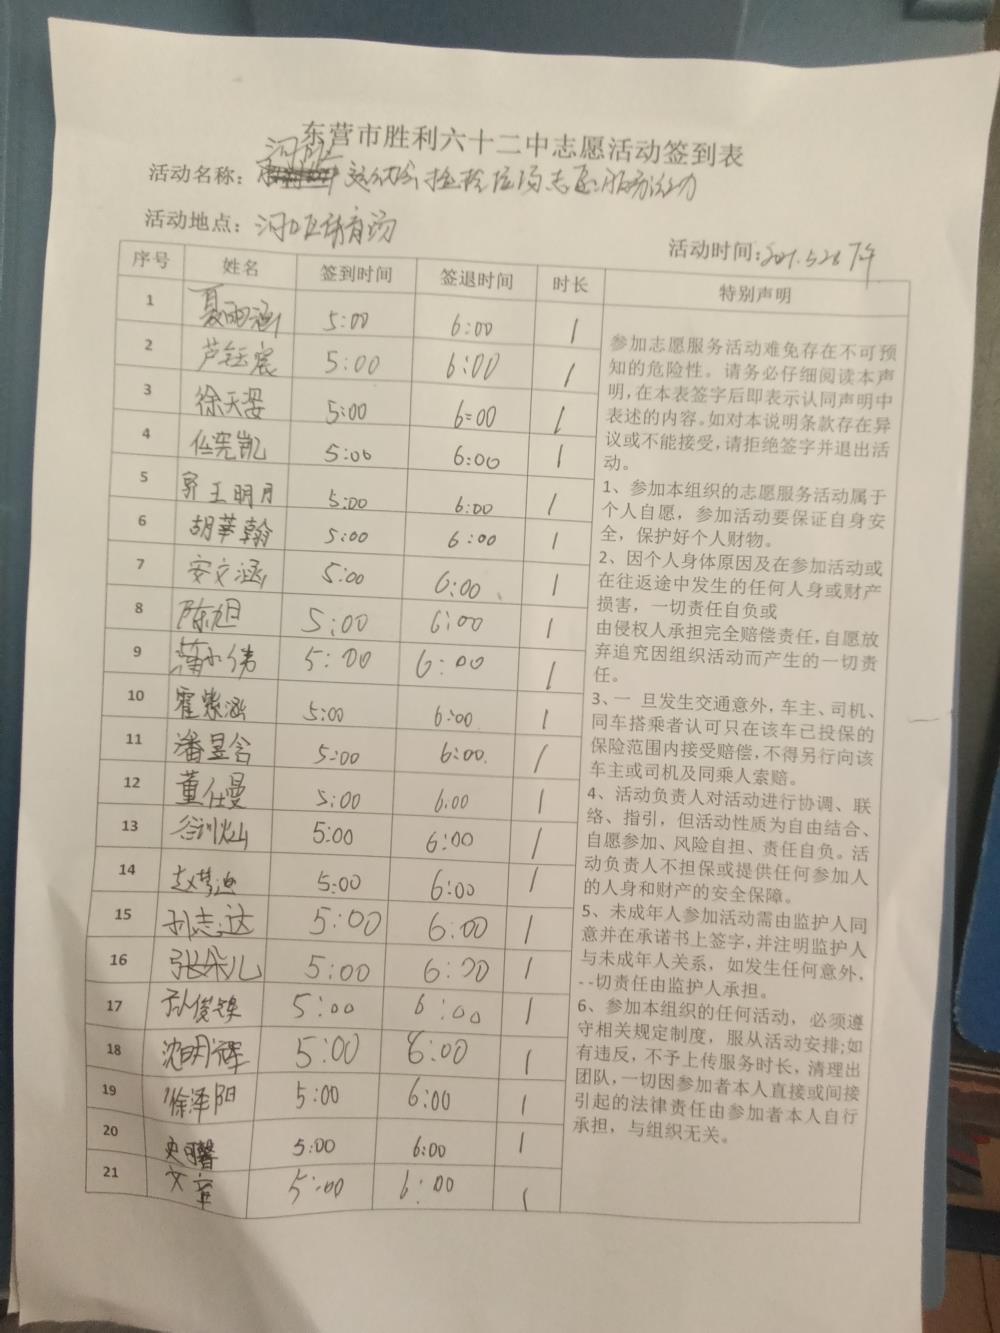 东营市胜利六十二中志愿活动签到表
活动名称：捡拾垃圾志愿服务活动
活动地点：河口区体育场
活动时间：2021.5.28 下午
序号 姓名 签到时间 签退时间 时长 特别声明
1 夏雨涵 5:00 6:00 1
2 芦钰宸 5:00 6:00 1
3 徐天姿 5:00 6:00 1
4 任宪凯 5:00 6:00 1
5 郭王明月 5:00 6:00 1
6 胡莘翰 5:00 6:00 1
7 安文涵 5:00 6:00 1
8 陈旭 5:00 6:00 1
9 5:00 6:00 1
10 霍紫涵 5:00 6:00 1
11 潘昱含 5:00 6:00 1
12 董仕曼 5:00 6:00 1
13 5:00 6:00 1
14 赵梦迪 5:00 6:00 1
15 孙志达 5:00 6:00 1
16 张朵儿 5:00 6:00 1
17 孙俊镁 5:00 6:00 1
18 沈明辉 5:00 6:00 1
19 徐泽阳 5:00 6:00 1
20 史明馨 5:00 6:00 1
21 文章 5:00 6:00 1
参加志愿服务活动难免存在不可预
知的危险性。请务必仔细阅读本声
明，在本表签字后即表示认同声明中
表述的内容。如对本说明条款存在异
议或不能接受，请拒绝签字并退出活
动。
1、参加本组织的志愿服务活动属于
个人自愿，参加活动要保证自身安
全，保护好个人财物。
2、因个人身体原因及在参加活动或
在往返途中发生的任何人身或财产
损害，一切责任自负或
由侵权人承担完全赔偿责任，自愿放
弃追究因组织活动而产生的一切责
任。
3、一 旦发生交通意外，车主、司机、
同车搭乘者认可只在该车已投保的
保险范围内接受赔偿，不得另行向该
车主或司机及同乘人索赔。
4、活动负责人对活动进行协调、联
络、指引，但活动性质为自由结合、
自愿参加、风险自担、责任自负。活
动负责人不担保或提供任何参加人
的人身和财产的安全保障。
5、未成年人参加活动需由监护人同
意并在承诺书上签字，并注明监护人
与未成年人关系，如发生任何意外，
--切责任由监护人承担。
6、参加本组织的任何活动，必须遵
守相关规定制度，服从活动安排；如
有违反，不予上传服务时长，清理出
团队，一切因参加者本人直接或间接
引起的法律责任由参加者本人自行
承担，与组织无关。